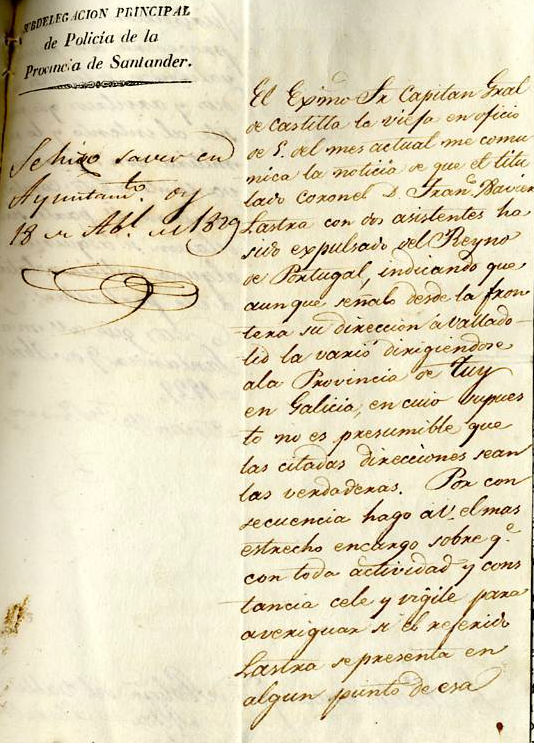 SUBDELEGACION PRINCIPAL
de Policía de la
Provincia de Santander.
Se hizo saver en
Ayuntamto. oy
18 de Abl. de 1829
El Exmo Sr Capitan Gral
de Castilla la vieja en oficio
de 5. del mes actual me comu
nica la noticia de que el titu
lado Coronel D. Franco. Xavier
Lastra con dos asistentes ha
sido expulsado del Reyno
de Portugal, indicando que
aunque señaló desde la fron
tera su direccion á Vallado
lid la varió dirigiendose
ala Provincia de Tuy
en Galicia, en cuio supues
to no es presumible que
las citadas direcciones sean
las verdaderas. Por con
secuencia hago á V. el mas
estrecho encargo sobre qe.
con toda actividad y cons
tancia cele y vigile para
averiguar si el referido
Lastra se presenta en
algun punto de esa